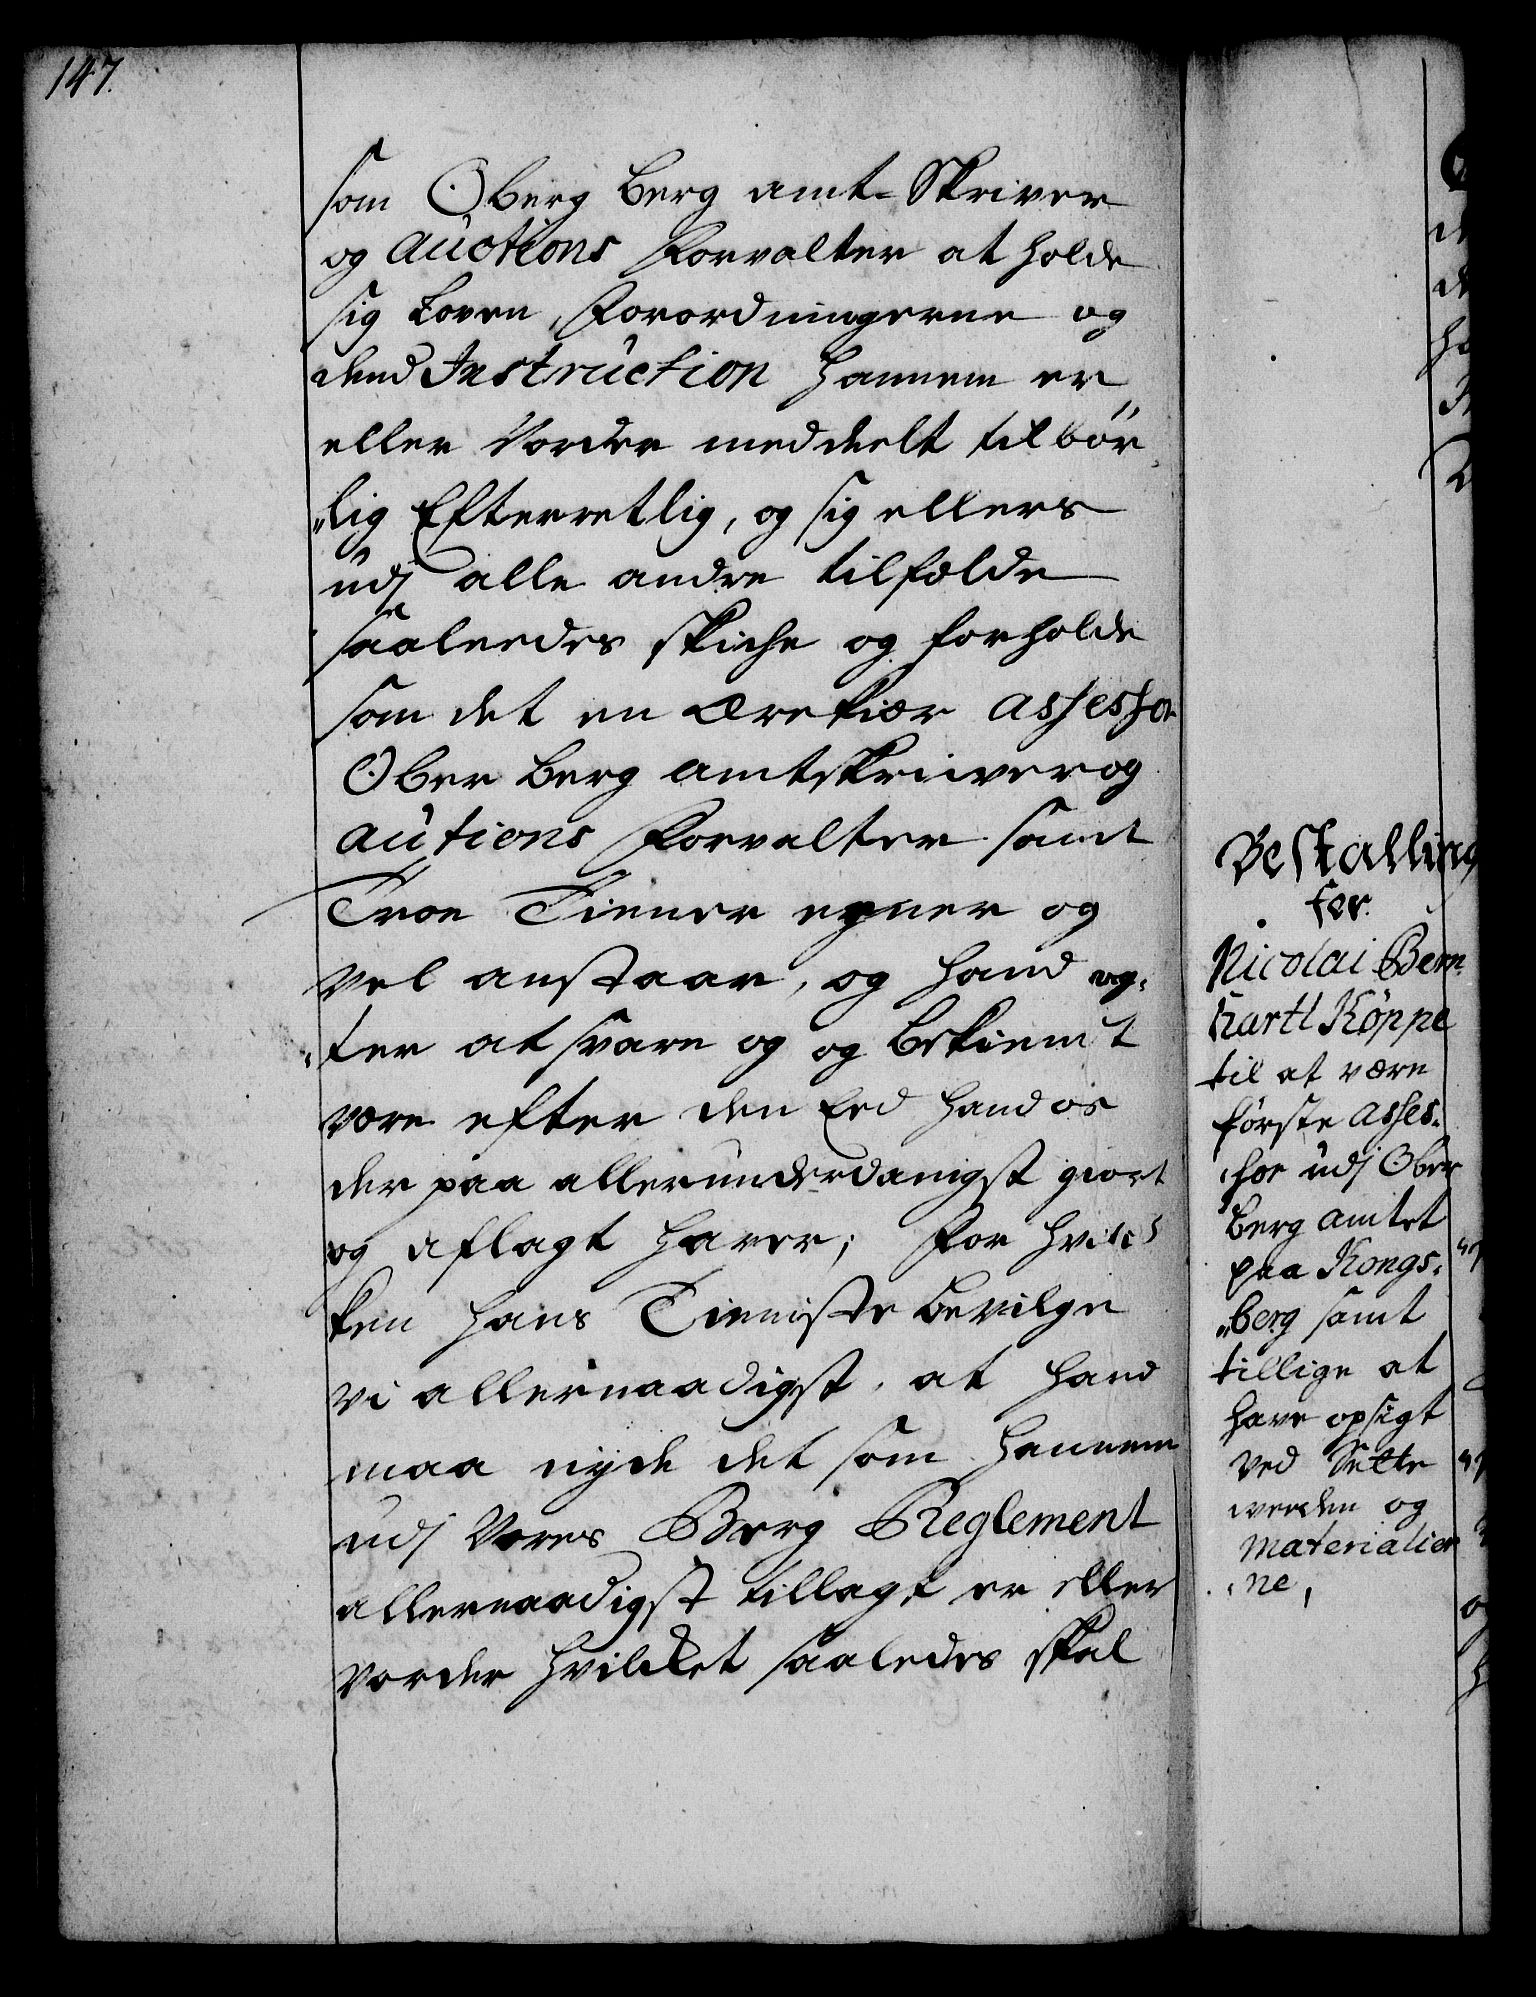 147.
som Oberg Berg amt-Skriver
og auctions Forvalter at holde
sig Loven, Forordningerne og
dend Instruction hannem er
eller Vorder meddeelt tilbør
„lig Efterretlig, og sig ellers
udj alle andre tilfælde
saaleedes skiche og forholde
som det en Ærekiær assessor
Ober Berg amtskriiver og
autions Forvalter samt
Troe Tiener egner og
vel anstaar, og hand ag:
:ter at svare og og bekiendt
være efter den Eed hand os
der paa allerunderdanigst giort
og aflagt haver; For hvil
ken hans Tieniste bevilge
vi allernaadigst, at hand
maa nyde det som hannem
udj Vores Berg Reglement
allernaadigst tillagt er eller
vorder hvilcket saaledes skal
Bestalling
for
Nicolai Bern
hartt Köppe
til at være
første asses:
:sor udj Ober
Berg amtet
paa Kongs:
„berg samt
tillige at
have opsigt
ved
werden og
Materialier
:ne,